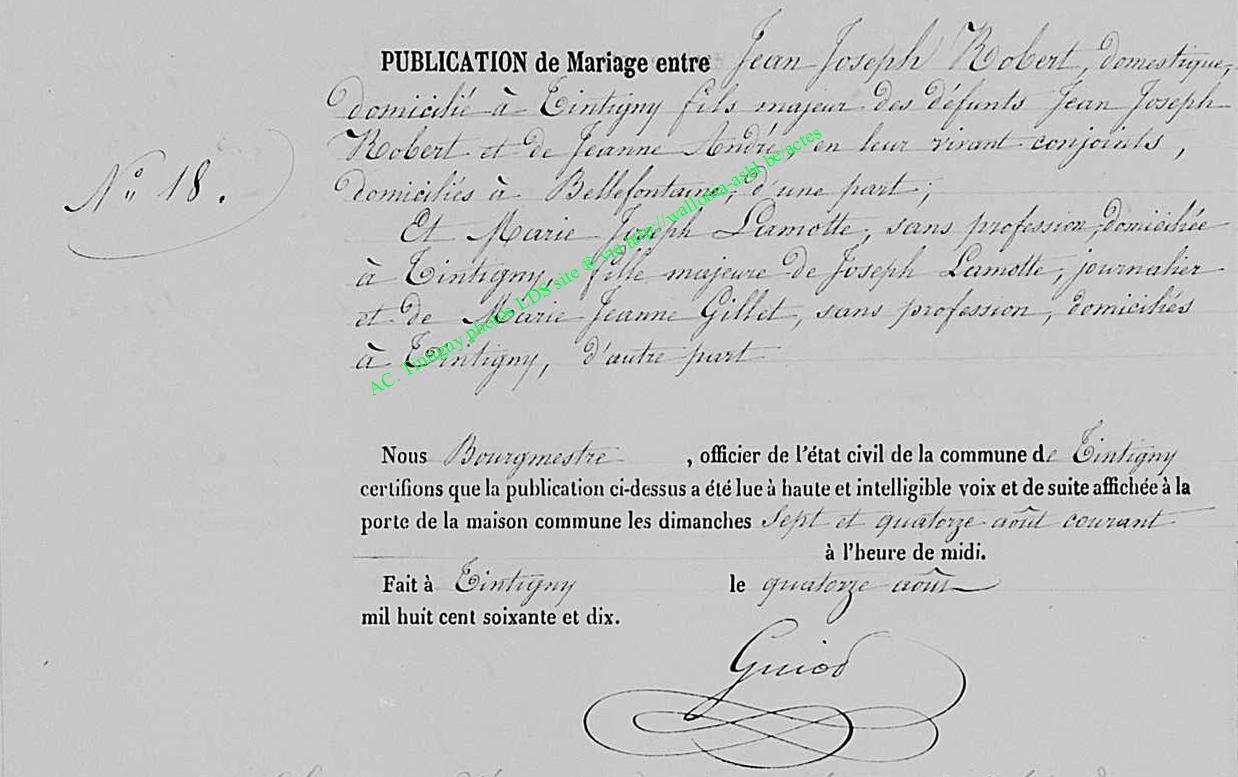 PUBLICATION de Mariage entre Jean Joseph Robert, domestique,
domicilié à Tintigny fils majeur des défunts Jean Joseph
Robert et de Jeanne André, en leur vivant conjoints,
N° 18.
domiciliés à Bellefontaine, d'une part;
Et Marie Joseph Lamotte, sans profession, domiciliée
à Tintigny, fille majeure de Joseph Lamotte, journalier
et de Marie Jeanne Gillet, sans profession, domiciliés
à Tintigny, d'autre part
AC. Tintigny photos LDS site ® via http://wallonia-asbl.be/actes
Nous Bourgmestre , officier de l'état civil de la commune de Tintigny
certifions que la publication ci-dessus a été lue à haute et intelligible voix et de suite affichée à la
porte de la maison commune les dimanches sept et quatorze août courant
à l'heure de midi.
Fait à Tintigny le quatorze août
mil huit cent soixante et dix.
Guiod